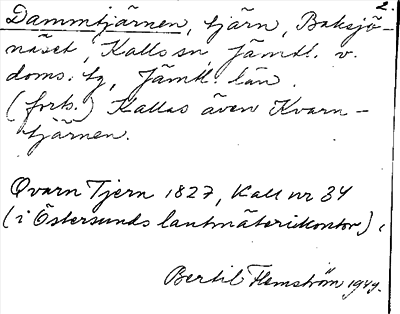 2.
Dammtjärnen, tjärn, Baksjö-
näset, Kalls sn Jämtl. v.
doms. tg, Jämtl. län.
(forts.) Kallas även Kvarn-
tjärnen.
Qvarn Tjern 1827, Kall nr 34
(i Östersunds lantmäterikontor),
Bertil Flemström 1949.